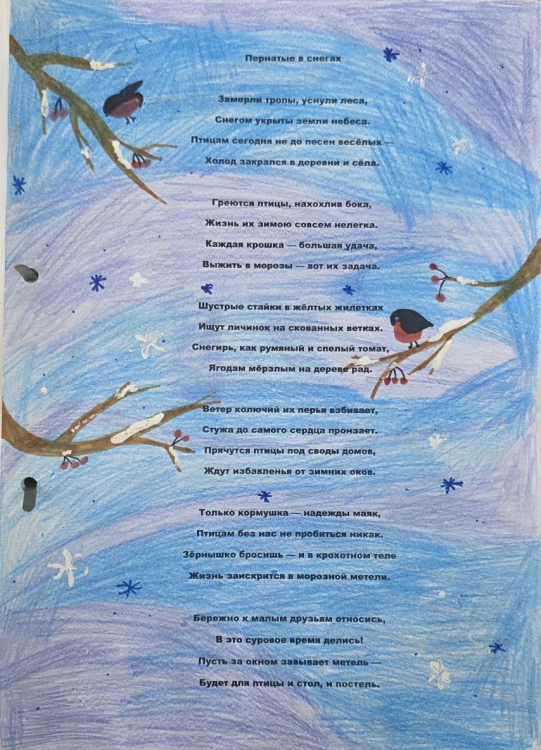 Пернатые в снегах
Замерли тропы, уснули леса,
Снегом укрыты земли небеса.
Птицам сегодня не до песен весёлых —
Холод закрался в деревни и сёла.
Греются птицы, нахохлив бока,
Жизнь их зимою совсем нелегка.
Каждая крошка — большая удача,
Выжить в морозы — вот их задача.
Шустрые стайки в жёлтых жилетках
Ищут личинок на скованных ветках.
Снегирь, как румяный и спелый томат,
Ягодам мёрзлым на дереве рад.
Ветер колючий их перья взбивает,
Стужа до самого сердца пронзает.
Прячутся птицы под своды домов,
Ждут избавленья от зимних оков.
Только кормушка — надежды маяк,
Птицам без нас не пробиться никак.
Зёрнышко бросишь — и в крохотном теле
Жизнь заискрится в морозной метели.
Бережно к малым друзьям относись,
В это суровое время делись!
Пусть за окном завывает метель —
Будет для птицы и стол, и постель.